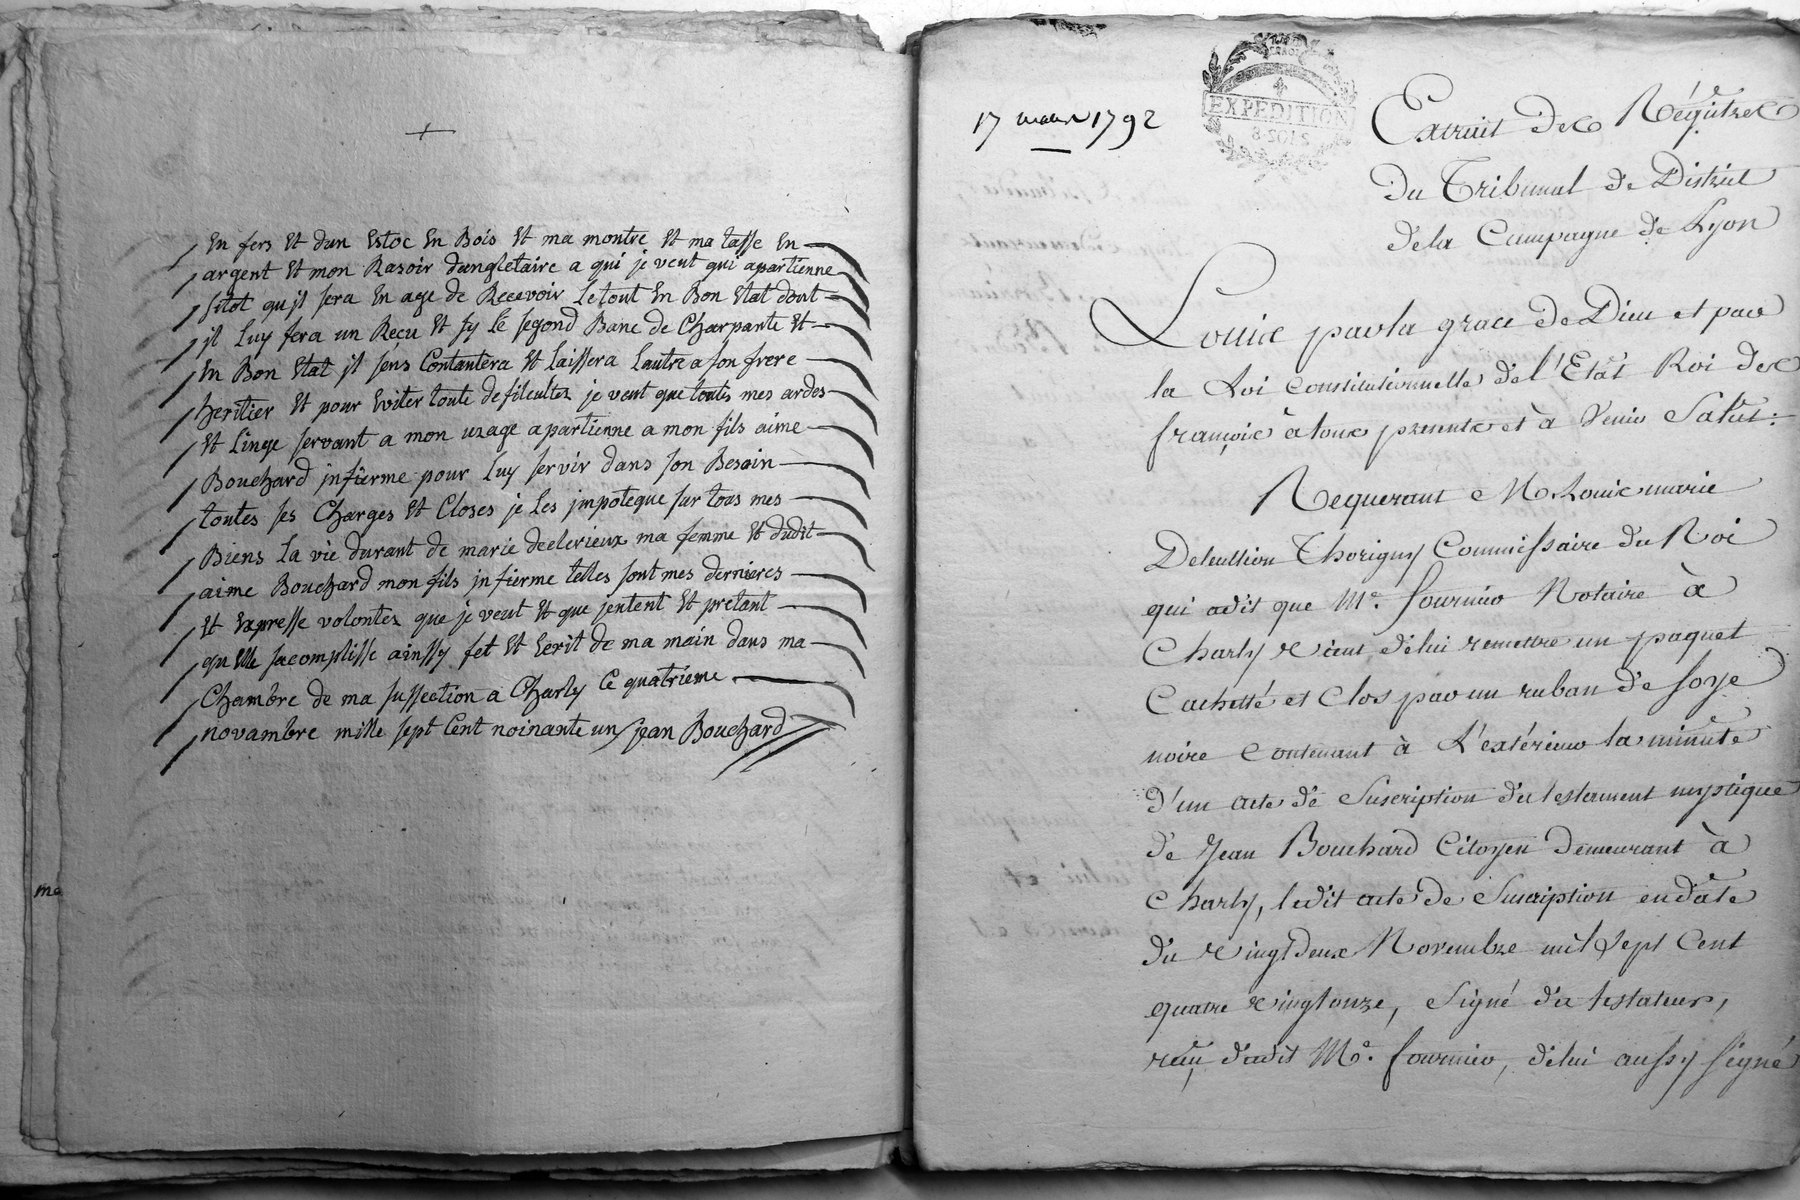 en fers et dun estoc en Bois et ma montre et ma tasse en
argent et mon Rasoir dangletaire a qui je veut qui apartienne
sitot quil sera en age de Recevoir le tout en Bon etat dont
il luy fera un Reçu et sy le segond Banc de Charpante et
en Bon etat il sens Contantera et laissera lautre a son frere
heritier et pour eviter toute defilcultez je veut que toutes mes ardes
et linge servant a mon uzage apartienne a mon fils aime
Bouchard infierme pour luy servir dans son Besoin
toutes ses Charges et Closes je les impoteque sur tous mes
Biens la vie durant de marie declerieux ma femme et dudit
aime Bouchard mon fils infierme telles sont mes dernieres
et expresse volontez que je veut et que jentent et pretant
quelle sacomplisse ainssy fet et ecrit de ma main dans ma
Chambre de ma sussection a Charly Ce quatrieme
novambre mille sept Cent noinante un jean Bouchard
me
17 mars 1792
EXPEDITION
8 SOLS
Extrait des Régitres
du Tribunal de District
de la Campagne de Lyon
Louis par la grace de Dieu et par
la Loi constitutionnelle de l'Etat Roi des
françois à tous presents et à Venir Salut:
Requerant M. Louis marie
Deleullion Thorigny Commissaire du Roi
qui adit que Me. fournier Notaire à
Charly vient de lui remettre un paquet
Cachetté et Clos par un ruban de soye
noire Contenant à L'extérieur la minute
d'un acte de Suscription du testament mystique
de Jean Bouchard Citoyen demeurant à
Charly, ledit acte de Suscription en date
du vingt deux Novembre mil Sept Cent
quatre vingt onze, Signé du testateur,
reçu dudit Me. fournier, de lui aussy signé